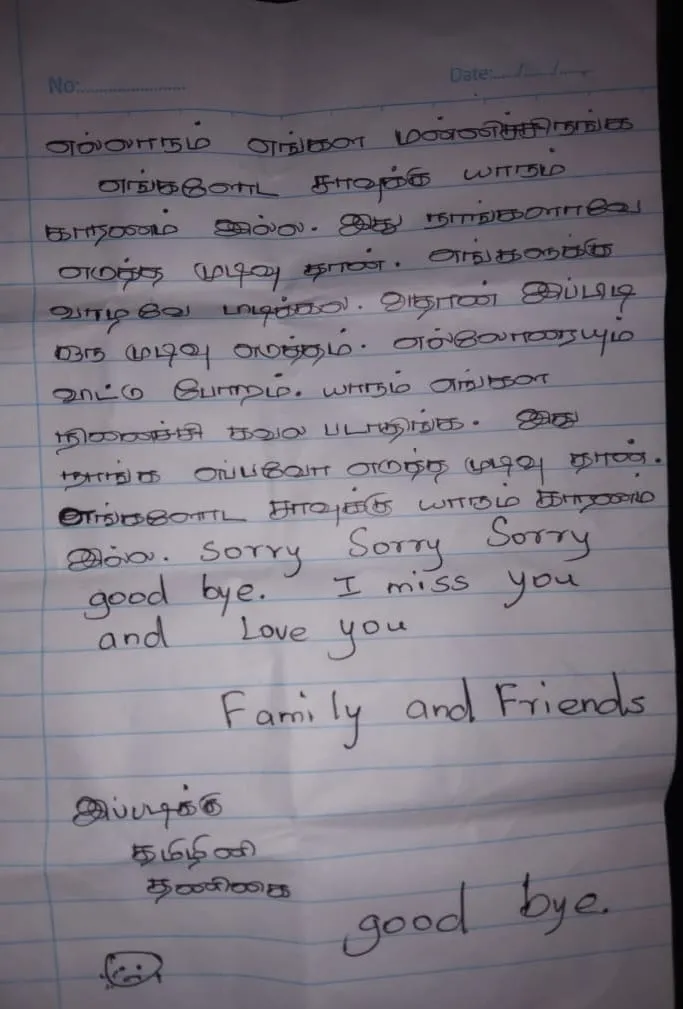 No:..................... Date:..../....../......
எல்லாரும் எங்கள மன்னிச்சிருங்க
எங்களோட சாவுக்கு யாரும்
காரணம் இல்ல. இது நாங்களாவே
எடுத்த முடிவு தான். எங்களுக்கு
வாழவே புடிக்கல. அதான் இப்படி
ஒரு முடிவு எடுத்தம். எல்லோரையும்
உட்டு போறம். யாரும் எங்கள
நினைச்சி கவல படாதிங்க. இது
நாங்க எப்பவோ எடுத்த முடிவு தான்.
எங்களோட சாவுக்கு யாரும் காரணம்
இல்ல. Sorry Sorry Sorry
good bye. I miss you
and Love you
Family and Friends
இப்படிக்கு
தமிழினி
தணிகை
good bye.